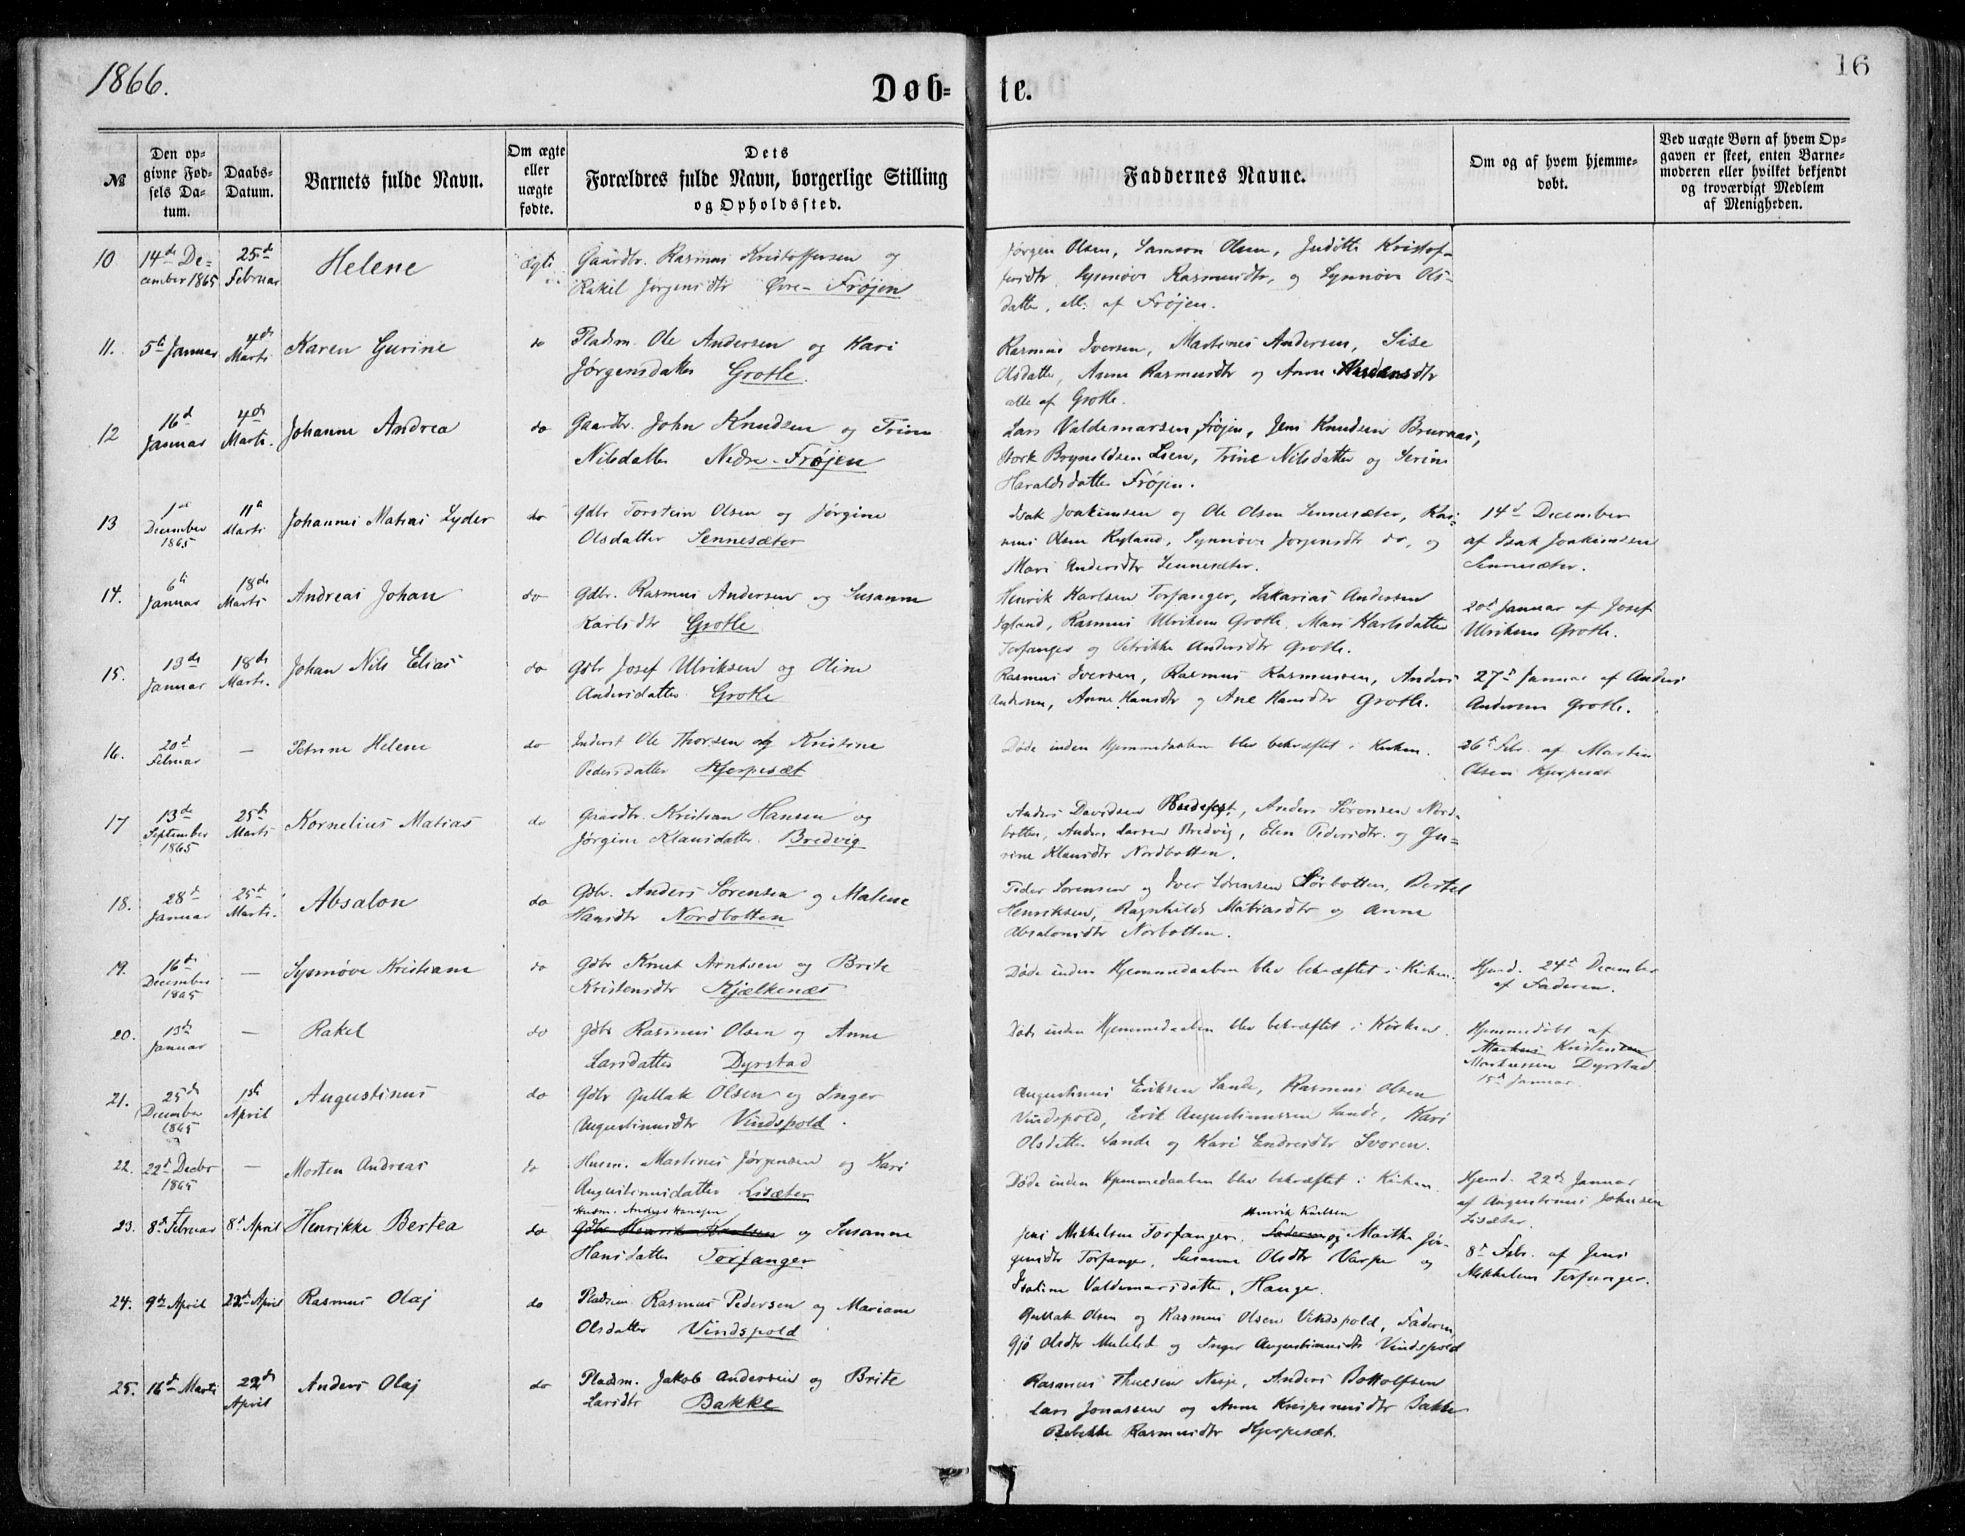 1866.
Døb-
te.
16
№
Den op-
givne Fød-
sels Da-
tum.
Daabs-
Datum.
Barnets fulde Navn.
Om ægte
eller
uægte
fødte.
Dets
Forældres fulde Navn, borgerlige Stilling
og Opholdssted.
Faddernes Navne.
Om og af hvem hjemme-
døbt.
Ved uægte Børn af hvem Op-
gaven er skeet, enten Barne-
moderen eller hvilket bekjendt
og troværdigt Medlem
af Menigheden.
10
14de De-
cember 1865
25de
Februar
Helene
Ægte
Gaardbr. Rasmus Kristoffersen og
Rakel Jørgensdtr Øvre-Frøjen
Jørgen Olsen, Samson Olsen, Judithe Kristof-
fersdtr, Synnøve Rasmusdtr, og Synnøve Ols-
datter, All: af Frøjen.
11.
5te Januar
4de
Marts
Karen Gurine
do
Pladsm. Ole Andersen og Kari
Jørgensdatter Grotle.
Rasmus Iversen, Martines Andersen, Sise
Olsdatter, Anne Rasmusdtr og Anne
alle af Grotle.
12
16d
Januar
4de
Marts.
Johanne Andrea
do
Gaardbr. John Knudsen og Trine
Nilsdatter Nedre-Frøjen
Lars Valdemarsen Frøjen, Jens Knudsen Brurnæs,
Brynildsen Lien, Trine Nilsdatter og Serine
Haraldsdatter Frøjen.
13
1ste
December
1865
11te
Marts
Johannes Matias Lyder
do
Gdbr Torstein Olsen og Jørgine
Olsdatter Sennesæter
Isak Joakimsen og Ole Olsen Sennesæter, Ras-
mus Olsen Ryland, Synnøve Jørgensdtr do, og
Mari Andersdtr Sennesæter.
14d December
af Isak Joakimsen
Sennesæter.
14.
6te
Januar
18de
Marts
Andreas Johan
do
Gdbr. Rasmus Andersen og Susanne
Karlsdtr Grotle
Henrik Karlsen Torfanger, Sakarias Andersen
Igland, Rasmus Ulriksen Grotle, Mari Karlsdatter
Torfanger og Petrikke Andersdtr Grotle.
20d Januar af Josef
Ulriksen Grotle.
15.
13de
Januar
18de
Marts.
Johan Nils Elias
do
Gdbr Josef Ulriksen og Oline
Andersdatter Grotle
Rasmus Iversen, Rasmus Rasmussen, Anders
Andersen, Anne Hansdtr og Ane Hansdtr Grotle.
27d Januar af Anders
Andersen Grotle.
16.
20d
Februar
—
Petrine Helene
do
Inderst Ole Thorsen og Kristine
Pedersdatter Kjerpesæt
Døde inden Hjemmedaaben blev bekræftet i Kirken.
26d Febr. af Martin
Olsen Kjerpesæt
17
13de
September
1865
25de
Marts
Kornelius Matias
do
Gaardbr. Kristian Hansen og
Jørgine Klausdatter Bredvig
Anders Davidsen Rudesæt, Anders Sørensen Nord-
botten, Anders Larsen Bredvig, Elen Pedersdtr. og Gu-
rine Klausdtr Nordbotten.
18.
28d
Januar
25d
Marts.
Absalon
do
Gdbr. Anders Sørensen og Malene
Hansdtr Nordbotten
Peder Sørensen og Iver Sørensen Sørbotten, Bertel
Henriksen, Ragnhild Matiasdtr og Anne
Absalonsdtr Norbotten.
19.
16de
December
1865
—
Synnøve Kristiane
do
Gdbr Knut Arntsen og Brite
Kristensdtr Hjælkenæs
Døde inden Hjemmedaaben blev bekræftet i Kirken.
Hjemd. 24d December
af Faderen.
20.
13de
Januar
—
Rakel
do
Gdbr Rasmus Olsen og Anne
Larsdatter Dyrstad
Døde inden Hjemmedaaben blev bekræftet i Kirken.
Hjemmedøbt af
Markus Kristensen
Markussen Dyrstad
15d Januar.
21.
25de
December
1865
1ste
April
Augustinus
do
Gdbr Gullak Olsen og Inger
Augustinusdtr Vindspold.
Augustinus Eriksen Sande, Rasmus Olsen
Vindspold, Erik Augustinussen Sande, Kari
Olsdatter Sande og Kari Endresdtr Svoren.
22.
22d Decbr
1865
—
Morten Andreas
do
Husm. Martines Jørgensen og Kari
Augustinusdatter Lisæter
Døde inden Hjemmedaaben blev bekræftet i Kirken.
Hjemd. 22de Januar
af Augustinus Johnsen
Lisæter.
23.
8d Februar
8d April
Henrikke Bertea
do
Husm. Anders Hansen
Gdbr Henrik Karlsen og Susanne
Hansdatter Torfanger
Henrik Karlsen
Jens Mikkelsen Torfanger, Faderen og Marthe Jør-
gensdtr Torfanger, Susanne Olsdtr Varpe og
Valdemarsdatter, Hauge.
8d Febr. af Jens
Mikkelsen Torfanger.
24.
9de April
22d April
Rasmus Olaj
do
Pladsm. Rasmus Pedersen og Mariane
Olsdatter Vindspold
Gullak Olsen og Rasmus Olsen Vindspold, Faderen,
Gjø Olsdtr og Inger Augustinusdtr Vindspold
25.
16d Marts
22de
April
Anders Olaj
do
Pladsm. Jakob Andersen og Brite
Larsdtr Bakke
Rasmus Thuesen Nesje, Anders Bottolfsen
Lars Jonassen og Anne Krispinusdtr Bakke
Rebekka Rasmusdtr Kjerpesæt.